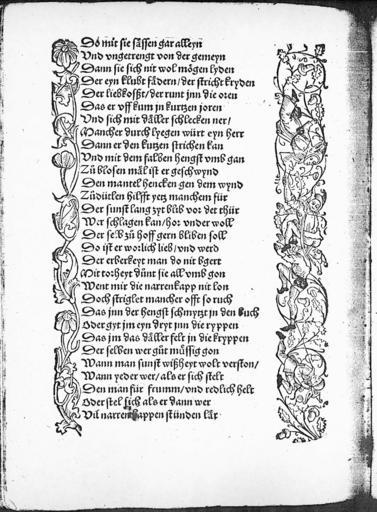 Do mit sie sässen gar alleyn
Vnd vngetrengt von der gemeyn
Dann sie sich nit wol mögen lyden
Der eyn klubt fädern/der stricht kryden
Der liebkoßt/der runt jnn die oren
Das er vff kum jn kurtzen joren
Vnd sich mit däller schlecken ner/
Mancher durch lyegen würt eyn herr
Dann er den kutzen strichen kan
Vnd mit dem falben hengst vmb gan
Zů blosen mäl ist er geschwynd
Den mantel hencken gen dem wynd
Zůdütlen hilfft yetz manchem für
Der sunst lang zyt blib vor der thür
Wer schlagen kan/hor vnder woll
Der selb zů hoff gern bliben soll
Do ist er worlich lieb/vnd werd
Der erberkeyt man do nit bgert
Mit torheyt dünt sie all vmb gon
Went mir die narrenkapp nit lon
Doch striglet mancher offt so ruch
Das jnn der hengst schmytzt jn den buch
Oder gyt jm eyn dryt jnn die ryppen
Das jm das däller felt jn die kryppen
Der selben wer gůt müssig gon
Wann man sunst wißheyt wolt verston/
Wann yeder wer/als er sich stelt
Den man für frumm/vnd redlich helt
Oder stel sich als er dann wer
Vil narrenkappen stünden lär